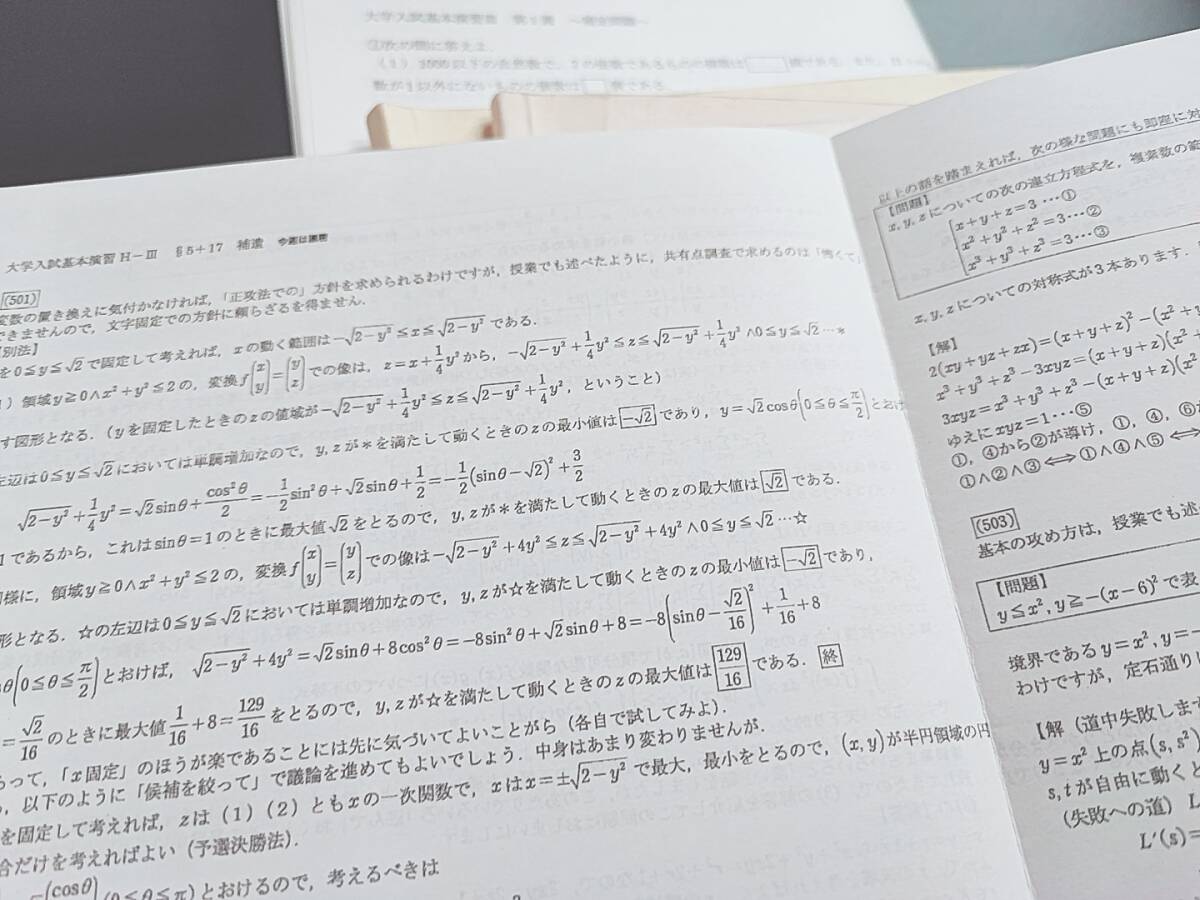 大学入試基本演習
①次の問に答えよ.
大学入試基本演習 H－Ⅲ §5+17 補遺
(501)
変数の置き換えに気付かなければ，「正攻法での」方針を求められるわけですが，授業でも述べたように，共有点調査で求めるのは「怖くて」
できませんので，文字固定での方針に頼らざるを得ません．
【別法】
を0≦y≦√2で固定して考えれば，xの動く範囲は-√(2-y²)≦x≦√(2-y²)である．
1）領域y≧0∧x²+y²≦2の，変換f(x y)=(y z)での像は，z=x+1/4y²から，-√(2-y²)+1/4y²≦z≦√(2-y²)+1/4y²∧0≦y≦√2…＊
す図形となる．（yを固定したときのzの値域が-√(2-y²)+1/4y²≦z≦√(2-y²)+1/4y²，ということ）
左辺は0≦y≦√2においては単調増加なので，y,zが＊を満たして動くときのzの最小値は-√2であり，y=√2cosθ(0≦θ≦π/2)とおけ
√(2-y²)+1/4y²=√2sinθ+cos²θ/2=-1/2sin²θ+√2sinθ+1/2=-1/2(sinθ-√2)²+3/2
1であるから，これはsinθ=1のときに最大値√2をとるので，y,zが＊を満たして動くときのzの最大値は√2である．
同様に，領域y≧0∧x²+y²≦2の，変換f(x y)=(y z)での像は-√(2-y²)+4y²≦z≦√(2-y²)+4y²∧0≦y≦√2…☆
形となる．☆の左辺は0≦y≦√2においては単調増加なので，y,zが☆を満たして動くときのzの最小値は-√2であり，
sθ(0≦θ≦π/2)とおけば，√(2-y²)+4y²=√2sinθ+8cos²θ=-8sin²θ+√2sinθ+8=-8(sinθ-√2/16)²+1/16+8
=√2/16のときに最大値1/16+8=129/16をとるので，y,zが☆を満たして動くときのzの最大値は129/16である．終
らって，「x固定」のほうが楽であることには先に気づいてよいことがら（各自で試してみよ）．
，以下のように「候補を絞って」で議論を進めてもよいでしょう．中身はあまり変わりませんが．
を固定して考えれば，zは（1）（2）ともxの一次関数で，xはx=±√(2-y²)で最大，最小をとるので，(x,y)が半円領域の円
合だけを考えればよい（予選決勝法）．
(cosθ
(0≦θ≦π)とおけるので，考えるべきは
以上の話を踏まえれば，次の様な問題にも即座に対
【問題】
x,y,zについての次の連立方程式を，複素数の範
x+y+z=3…①
x²+y²+z²=3…②
x³+y³+z³=3…③
x,y,zについての対称式が3本あります．
【解】
2(xy+yz+zx)=(x+y+z)²-(x²+y
x³+y³+z³-3xyz=(x+y+z)(x²+
3xyz=x³+y³+z³-(x+y+z)(x²
ゆえにxyz=1…⑤
①，④から②が導け，①，④，⑥が
①∧②∧③⟺①∧④∧⑤⟺
(503)
基本の攻め方は，授業でも述
【問題】
y≦x²,y≧-(x-6)²で表
境界であるy=x²,y=-
わけですが，定石通り
【解（道中失敗します
y=x²上の点(s,s²)
s,tが自由に動くと
（失敗への道）L
L′(s)=